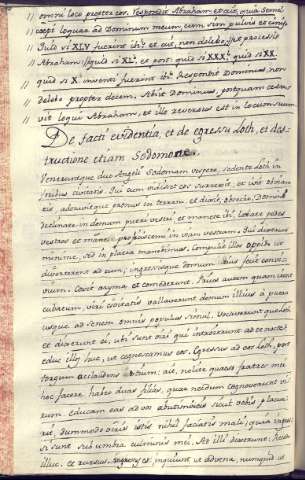 omni loco propter eos. Respondit Abraham et dixit, quia semel
cepi loquar ad Dominum meum, cum sim pulvis et cinis
Quid si XLV fuerint ibi? et dixit, non delebo, sic processit
Abraham, quid si XL. et post: quid si XXX. quid si XX.
quid si X inventi fuerint ibi. Respondit Dominus, non
delebo propter decem. Abiit Dominus, postquam cessa
vit loqui Abraham, et ille reversus est in locum suum
De facti evidentia, et de egressu Loth, et des-
tructione etiam Sodomorum.
Veneruntque duo Angeli Sodomam vespere, sedente Loth in
foribus civitatis. Qui cum vidisset eos surrexit, et ivit obviam
eis, adoravitque pronus in terram, et dixit, obsecro, Domini
declinate in domum pueri vestri et manete ibi, lavate pedes
vestros et mane proficiscemini in viam vestram. Qui dixerunt
minime, sed in platea manebimus. Compulit illos ut
diverterent ad eum, ingressisque domum illius fecit convi-
vium. Coxit azyma et comederunt. Prius autem quam irent
cubitum, viri civitatis vallaverunt domum illius à puero
usque ad senem omnis populus simul. Vocaveruntque Loth
et dixerunt ei, ubi sunt viri qui introierunt ad te nocte?
educ illos huc, ut cognoscamus eos. Egressus ad eos Loth, post
tergum occludens ostium: ait, nolite quaeso fratres mei
hoc facere habeo duas filias, quae nondum cognoverunt vi-
rum. educam eas ad vos abutimini eis sicut vobis placue-
rit, dummodo viris istis nihil faciatis mali; quia ingres-
si sunt sub umbra culminis mei. At illi dixerunt: Recede
illuc, et rursus, ingressus es, inquiunt ut advena, numquid ut